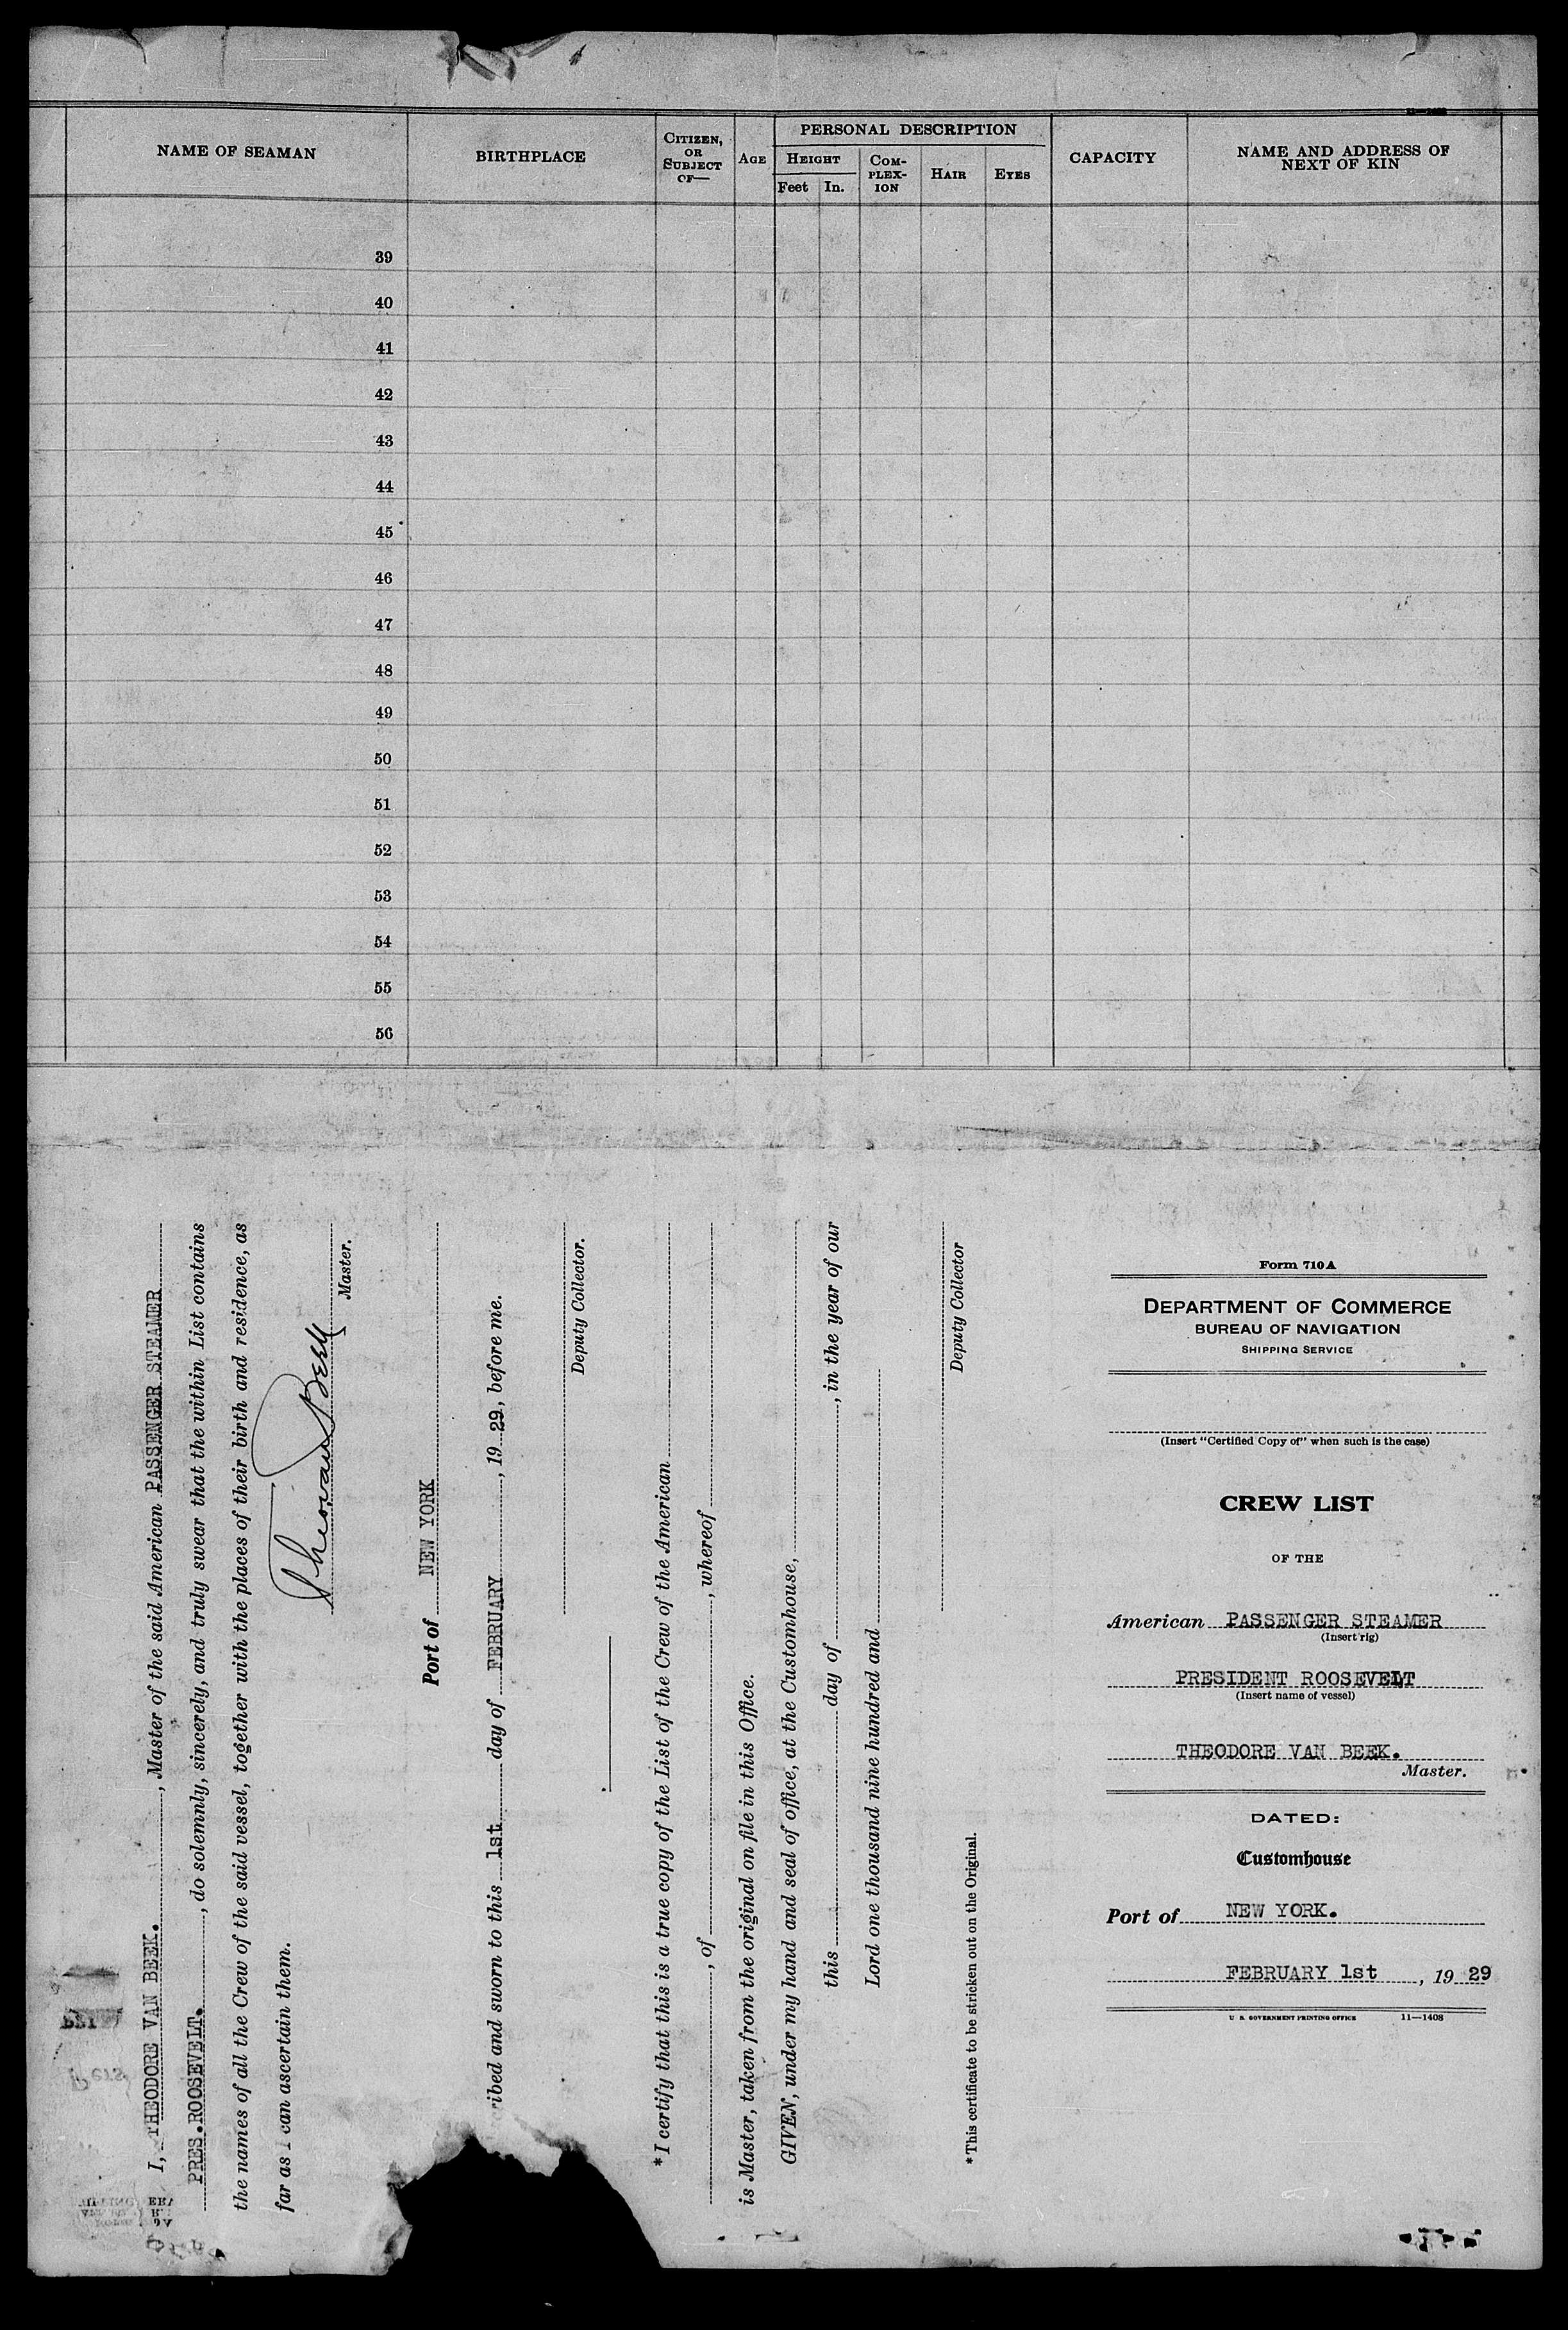 11—1408
NAME OF SEAMAN
BIRTHPLACE
CITIZEN, OR SUBJECT OF—
AGE
PERSONAL DESCRIPTION
HEIGHT
Feet In.
COM-PLEX-ION
HAIR
EYES
CAPACITY
NAME AND ADDRESS OF NEXT OF KIN
39
40
41
42
43
44
45
46
47
48
49
50
51
52
53
54
55
56
I, THEODORE VAN BEEK. , Master of the said American PASSENGER STEAMER
PRES.ROOSEVELT. , do solemnly, sincerely, and truly swear that the within List contains
the names of all the Crew of the said vessel, together with the places of their birth and residence, as
far as I can ascertain them.
Theo van Beek
Master.
Port of NEW YORK
ribed and sworn to this 1st day of FEBRUARY , 19 29, before me.
Deputy Collector.
*I certify that this is a true copy of the List of the Crew of the American
, of , whereof
is Master, taken from the original on file in this Office.
GIVEN, under my hand and seal of office, at the Customhouse,
this day of , in the year of our
Lord one thousand nine hundred and
Deputy Collector
*This certificate to be stricken out on the Original.
Form 710A
DEPARTMENT OF COMMERCE
BUREAU OF NAVIGATION
SHIPPING SERVICE
(Insert "Certified Copy of" when such is the case)
CREW LIST
OF THE
American PASSENGER STEAMER
(Insert rig)
PRESIDENT ROOSEVELT
(Insert name of vessel)
THEODORE VAN BEEK.
Master.
DATED:
Customhouse
Port of NEW YORK.
FEBRUARY 1st , 19 29
U. S. GOVERNMENT PRINTING OFFICE 11—1408